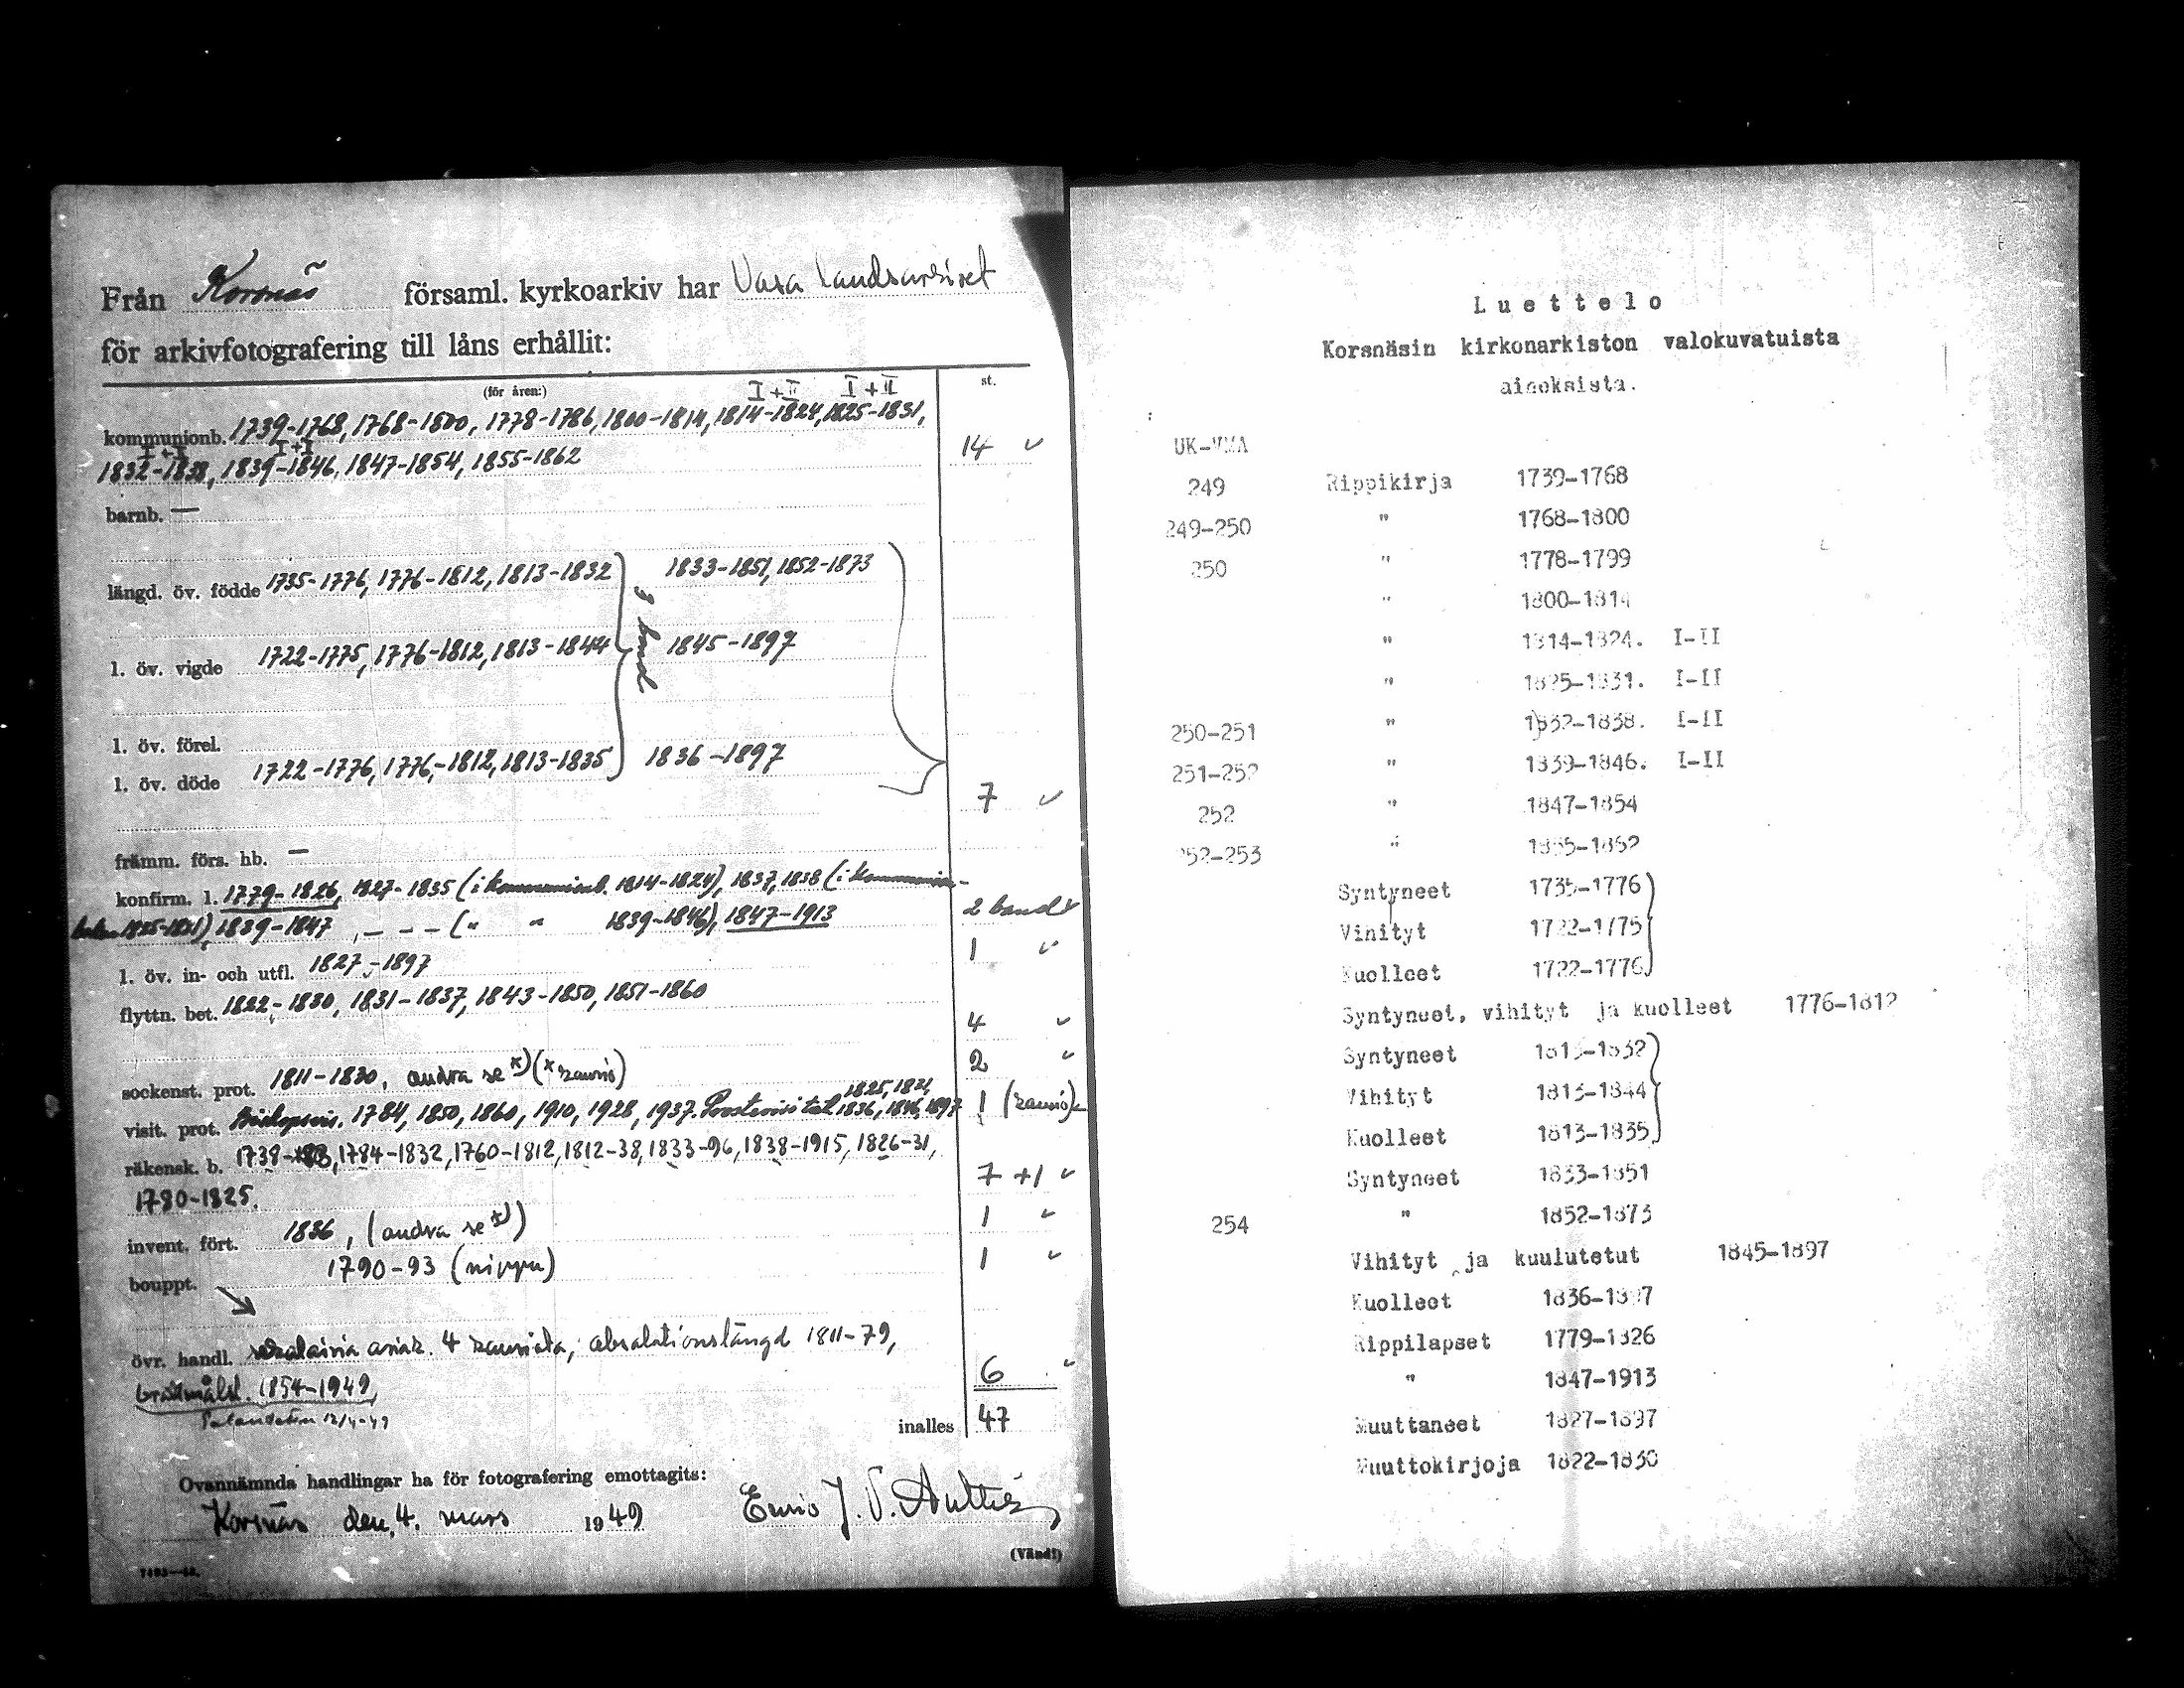 Från Korsnäs församl. kyrkoarkiv har Vasa Landsarkivet
för arkivfotografering till låns erhållit:
(för åren:) st.
I+II I+II
kommunionb. 1739-1768, 1768-1800, 1778-1786, 1800-1814, 1814-1824, 1825-1831,
I+I I+I
1832-1838, 1839-1846, 1847-1854, 1855-1862 14 ✓
barnb. —
längd. öv. födde 1735-1776, 1776-1812, 1813-1832 1833-1851, 1852-1873
band
l. öv. vigde 1722-1775, 1776-1812, 1813-1844 1845-1897
l. öv. förel.
l. öv. döde 1722-1776, 1776-1812, 1813-1835 1836-1897
7 ✓
främm. förs. hb. —
konfirm. l. 1779-1826, 1827-1835 (i kommunionb. 1814-1824), 1837, 1838 (i kommunion-
boken 1825-1831), 1839-1847, — — — (" " 1839-1846), 1847-1913 2 band ✓
l. öv. in- och utfl. 1827-1897 1 ✓
flyttn. bet. 1822-1830, 1831-1837, 1843-1850, 1851-1860
4 ✓
sockenst. prot. 1811-1830, andra se x) (x 2 ✓
1825, 1821,
visit. prot. Biskopsvis. 1784, 1850, 1860, 1910, 1928, 1937. 1836, 1846, 1897 1
räkensk. b. 1738- , 1784-1832, 1760-1812, 1812-38, 1833-96, 1838-1915, 1826-31,
1780-1825. 7+1 ✓
invent. fört. 1836, (andra se x) 1 ✓
bouppt. 1790-93 (nippu) 1 ✓
övr. handl. sekalaisia asiak. 4 absolutionslängd 1811-79,
1854-1949 6 ✓
12/4-49
inalles 47
Ovannämnda handlingar ha för fotografering emottagits:
Korsnäs den 4. mars 1949
(Vänd!)
L u e t t e l o
Korsnäsin kirkonarkiston valokuvatuista
aineksista.
UK-VMA
249 Rippikirja 1739-1768
249-250 " 1768-1800
250 " 1778-1799
" 1800-1814
" 1814-1824. I-II
" 1825-1831. I-II
250-251 " 1832-1838. I-II
251-252 " 1839-1846. I-II
252 " 1847-1854
252-253 " 1855-1862
Syntyneet 1735-1776
Vihityt 1722-1775
Kuolleet 1722-1776
Syntyneet, vihityt ja kuolleet 1776-1812
Syntyneet 1813-1832
Vihityt 1813-1844
Kuolleet 1813-1835
Syntyneet 1833-1851
254 " 1852-1873
Vihityt ja kuulutetut 1845-1897
Kuolleet 1836-1897
Rippilapset 1779-1826
" 1847-1913
Muuttaneet 1827-1897
Muuttokirjoja 1822-1830